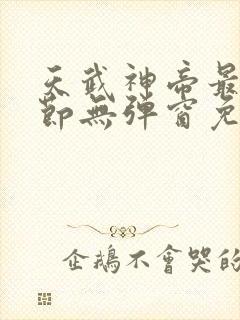 天武神帝最
節無彈窗免
企鵝不會哭的